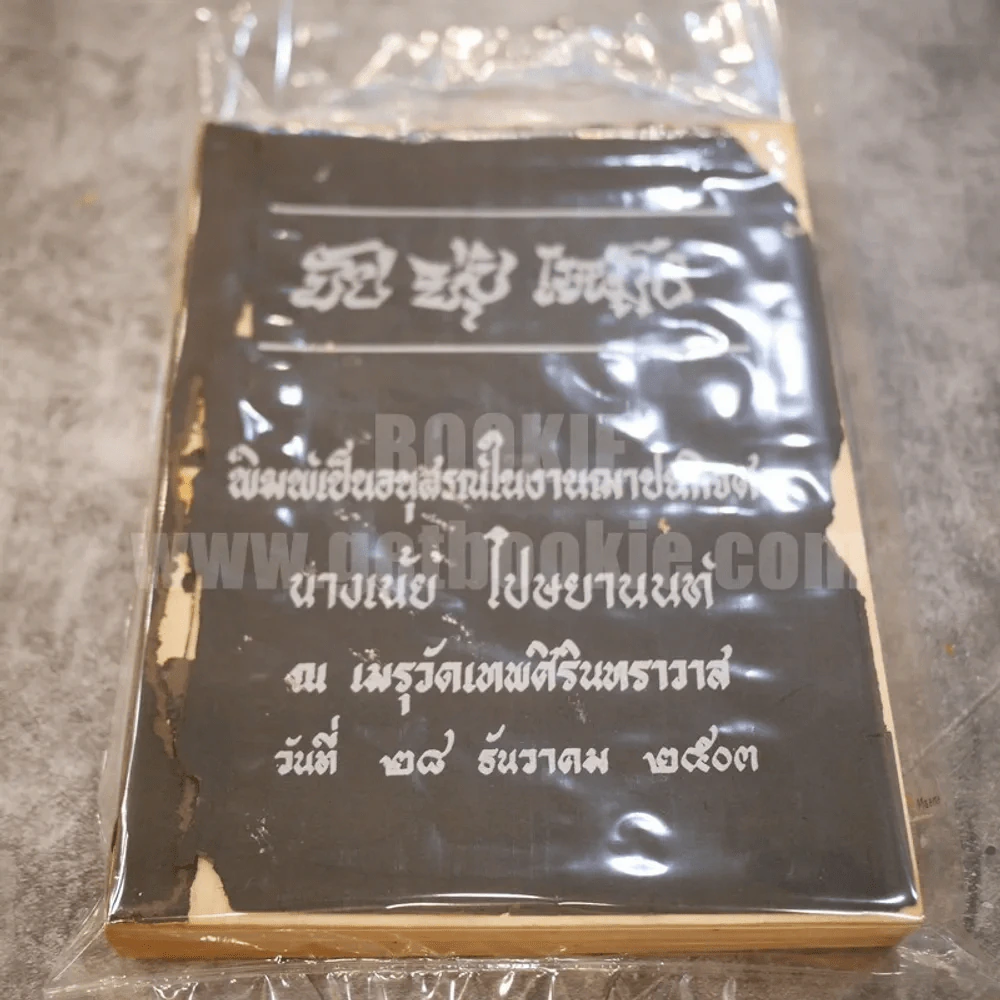 BOOKIE
พิมพ์เป็นอนุสรณ์ในงานฌาปนกิจศพ
www.getbookie.com
นางเน้ย ไปษยานนท์
ณ เมรุวัดเทพศิรินทราวาส
วันที่ ๒๘ ธันวาคม ๒๕๐๓